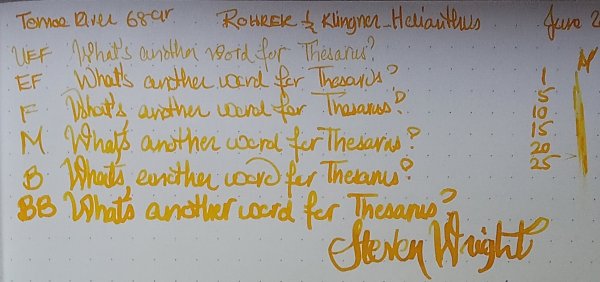 Tomoe River 68gr Rohrer & Klingner Helianthus June 2
UEF What's another word for Thesarus?
EF What's another word for Thesarus? 1
F What's another word for Thesarus? 5
10
M What's another word for Thesarus? 15
20
B What's another word for Thesarus? 25
BB What's another word for Thesarus?
Steven Wright